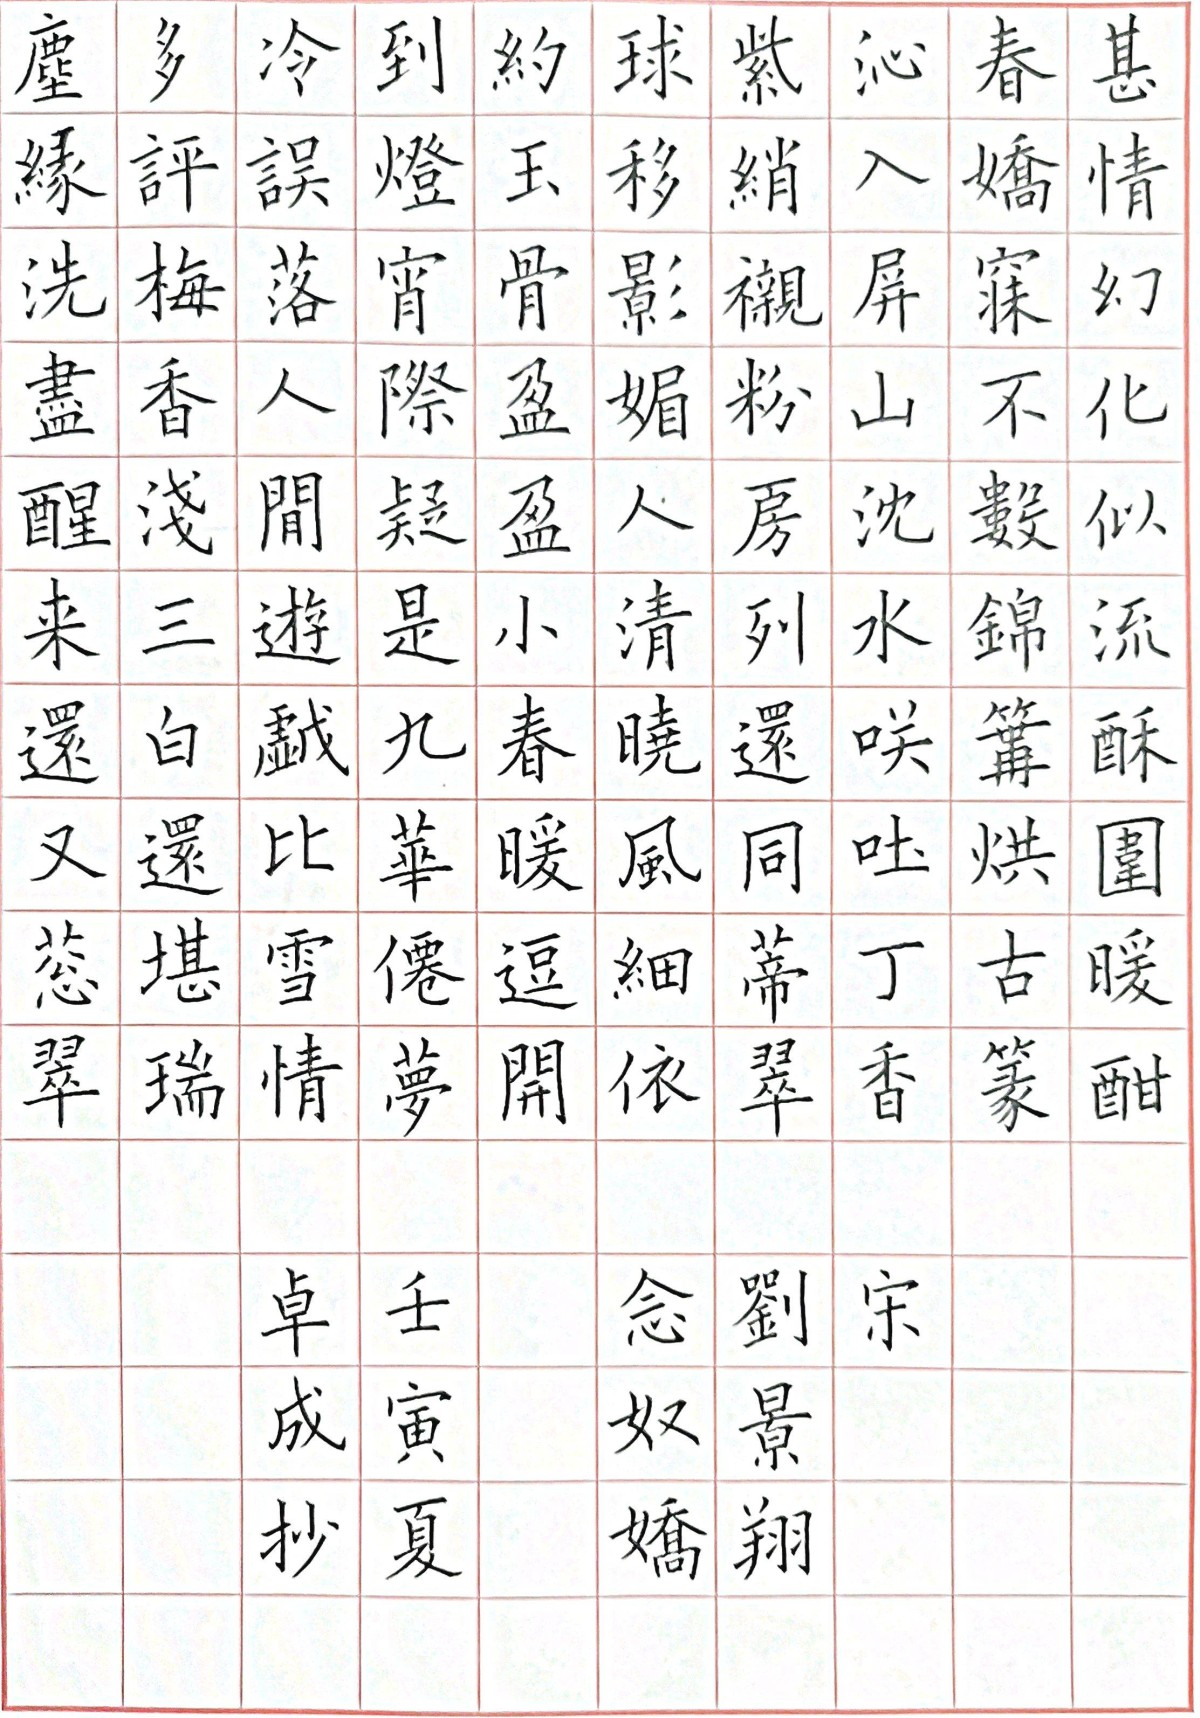 甚情幻化似流酥圍暖酣
春嬌寐不數錦篝烘古篆
沁入屏山沈水咲吐丁香
紫綃襯粉房列還同蒂翠
球移影媚人清曉風細依
約玉骨盈盈小春暖逗開
到燈宵際疑是九華僊夢
冷誤落人間遊戱比雪情
多評梅香淺三白還堪瑞
塵緣洗盡醒来還又葱翠
宋
劉景翔
念奴嬌
壬寅夏
卓成抄